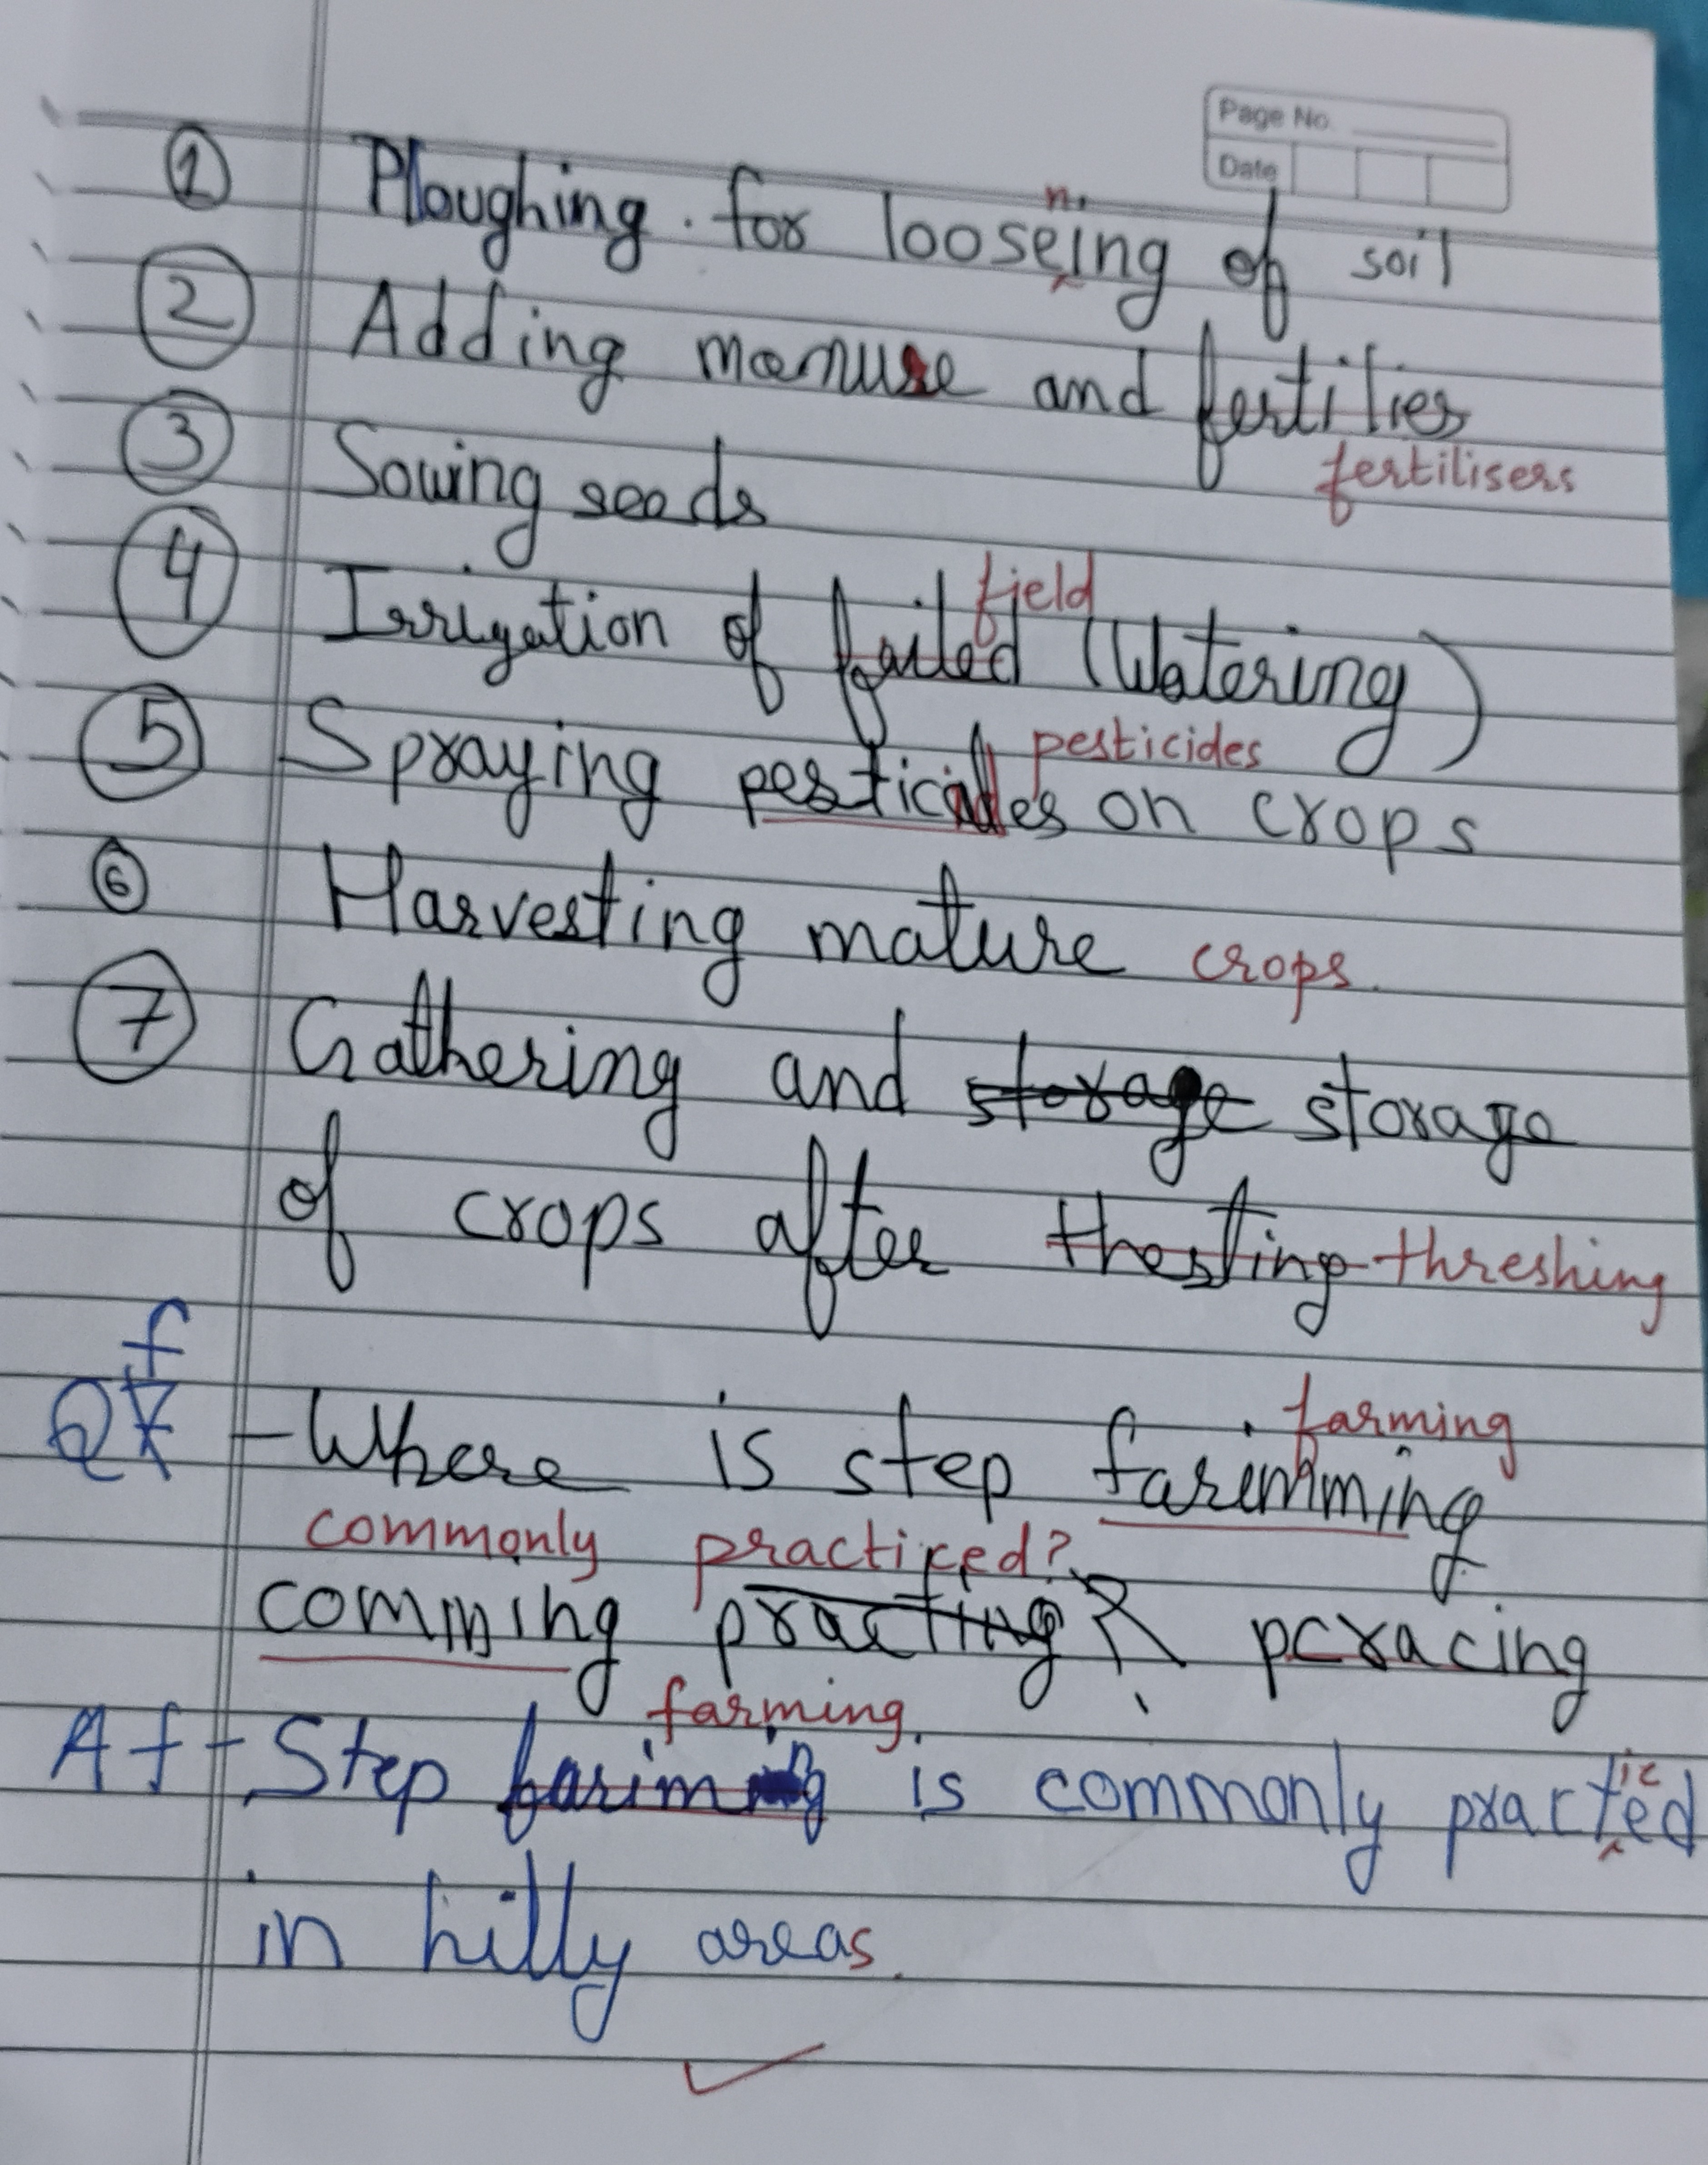 Page No.
Date
① Ploughing. for looseing of soil
n.
② Adding manure and fertilies
fertilisers
③ Sowing seeds
field
④ Irrigation of failed (Watering)
pesticides
⑤ Spraying pesticides on crops
⑥ Harvesting mature crops.
⑦ Gathering and storage storage
of crops after thesting threshing
f
farming
Q - Where is step farimming
commonly practiced?
comming practing? pcracing
farming.
A f - Step fariming is commonly practed
ic
in hilly areas.